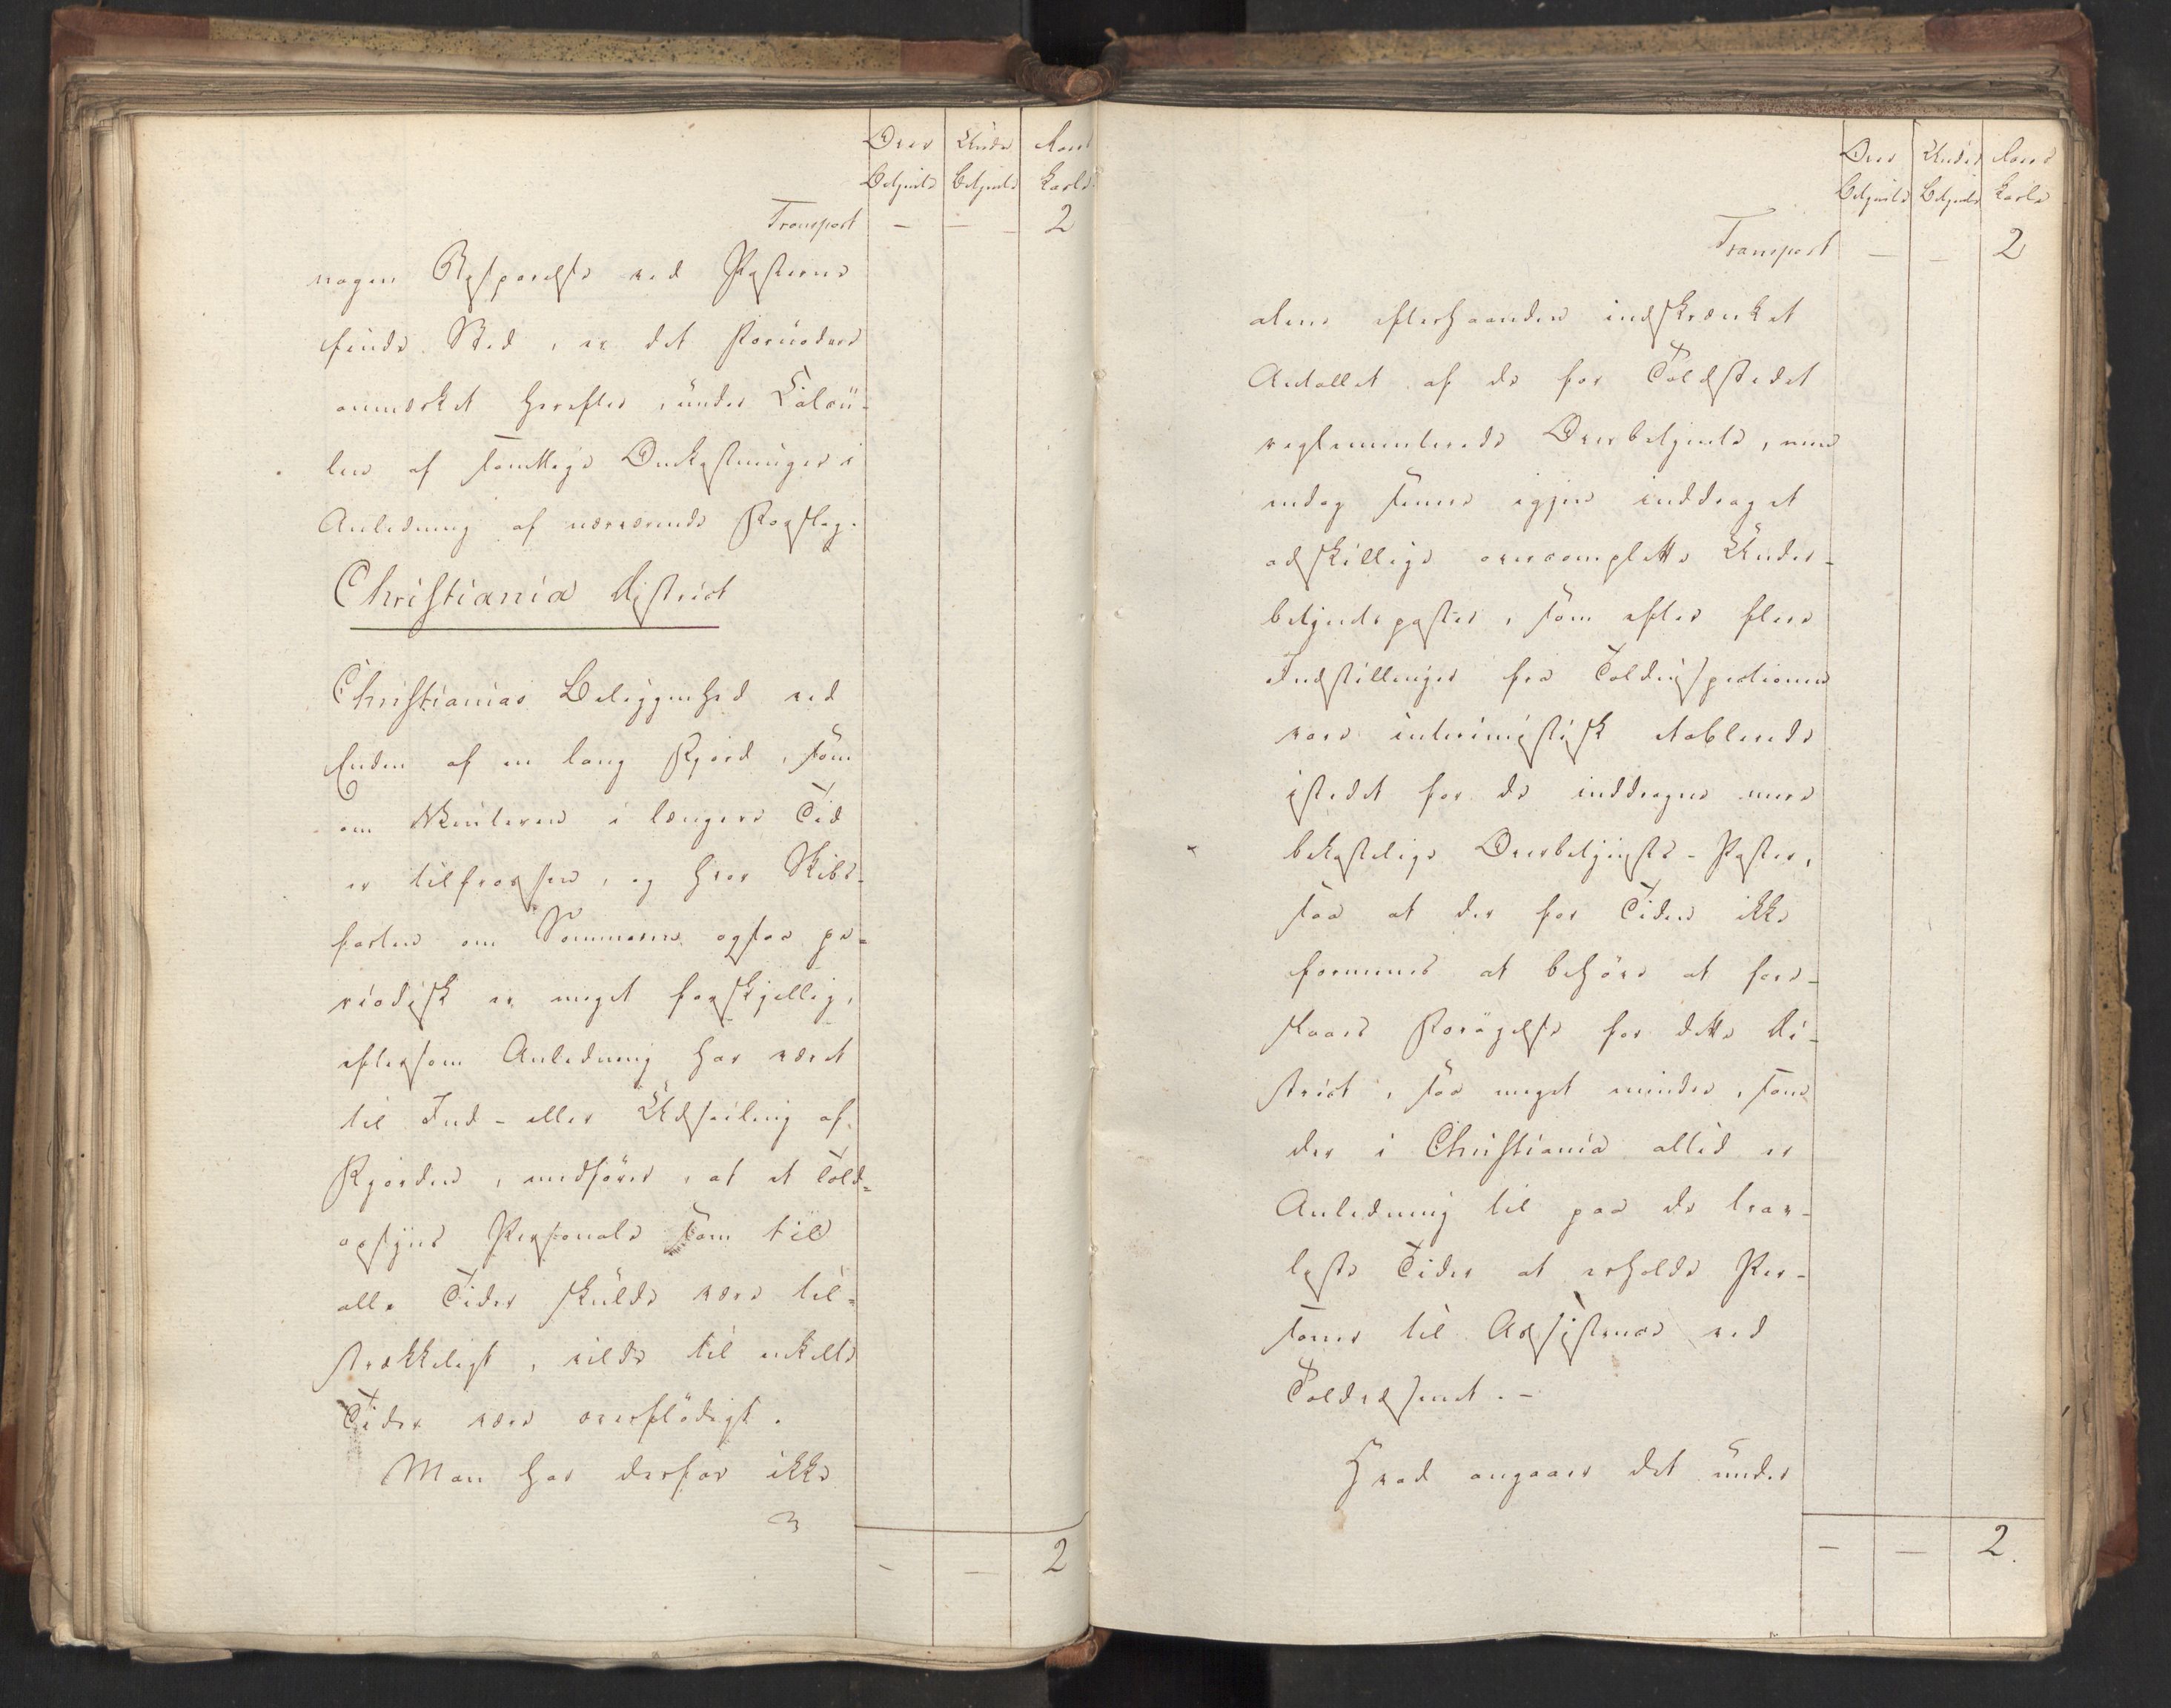 Over Under Roers
Betjente betjente karle
Transport - - 2
nogen Besparelse ved Posterne
finde Sted, er det fornødne
anmærket herefter, under Calcü-
len af samtlige Omkostninger i
Anledning af nærværende Forslag.
Christiania District
Christianias Beliggenhed ved
Enden af en lang Fjord, som
om Vinteren i længere Tid
er tilfrossen, og hvor Skibs-
farten om Sommeren ogsaa pe-
riodisk er meget forskjellig,
eftersom Anledning har været
til Ind- eller Udseiling af
Fjorden, medfører, at et Told-
opsyns Personale som til
alle Tider skulde være til-
strækkeligt, vilde til enkelte
Tider være overflødigt.
Man har derfor ikke
- - 2
Over Under Roers
Betjente Betjente karle
Transport - - 2
alene efterhaanden indskrænket
Antallet af de for Toldstedet
reglementerede Overbetjente, men
endog senere igjen inddraget
adskillige overcomplette Under-
betjentposter, som efter flere
Indstillinger fra Toldinspectionen
vare interimistisk etablerede
istedet for de inddragne mere
bekostelige Overbetjents-Poster,
saa at der for Tiden ikke
formenes at behøve at fore-
slaaes Forøgelse for dette Di-
strict, saa meget mindre, som
der i Christiania altid er
Anledning til paa de trav-
leste Tider at erholde Per-
soner til Assistence ved
Toldvæsenet.-
Hvad angaaer det under
- - 2.